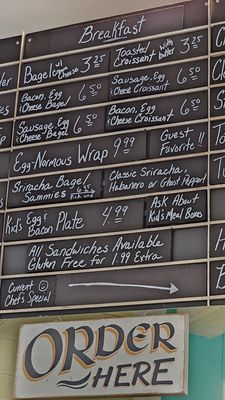 Breakfast
Bagel w/ Cream Cheese 3.25
Toasted Croissant with butter 3.25
Bacon, Egg & Cheese Bagel 6.50
Sausage, Egg & Cheese Croissant 6.50
Sausage, Egg & Cheese Bagel 6.50
Bacon, Egg & Cheese Croissant 6.50
Egg-Normous Wrap 9.99
Guest Favorite!!
Sriracha Bagel/ Sammies 6.75
Classic Sriracha, Habanero or Ghost Pepper!
Kid's Egg & Bacon Plate 4.99
Ask About Kid's Meal Boxes
All Sandwiches Available
Gluten Free for 1.99 Extra
Current Chef's Special
ORDER
HERE